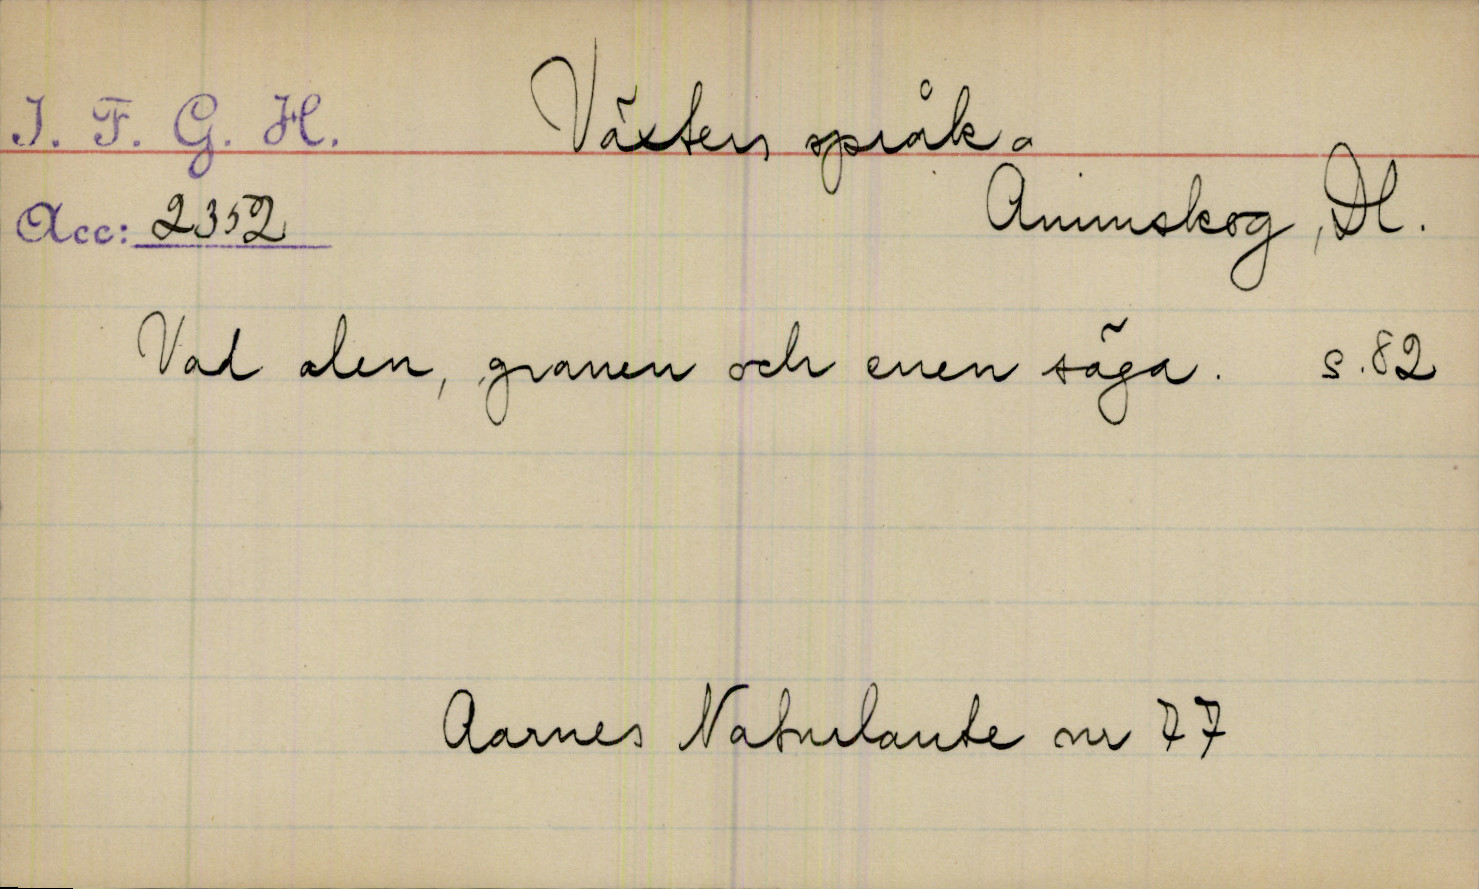 I. F. G. H.
Växters språk.
Acc: 2352
Animskog, Dl.
Vad alen, granen och enen säga. s. 82
Aarnes Naturlaute nr 77